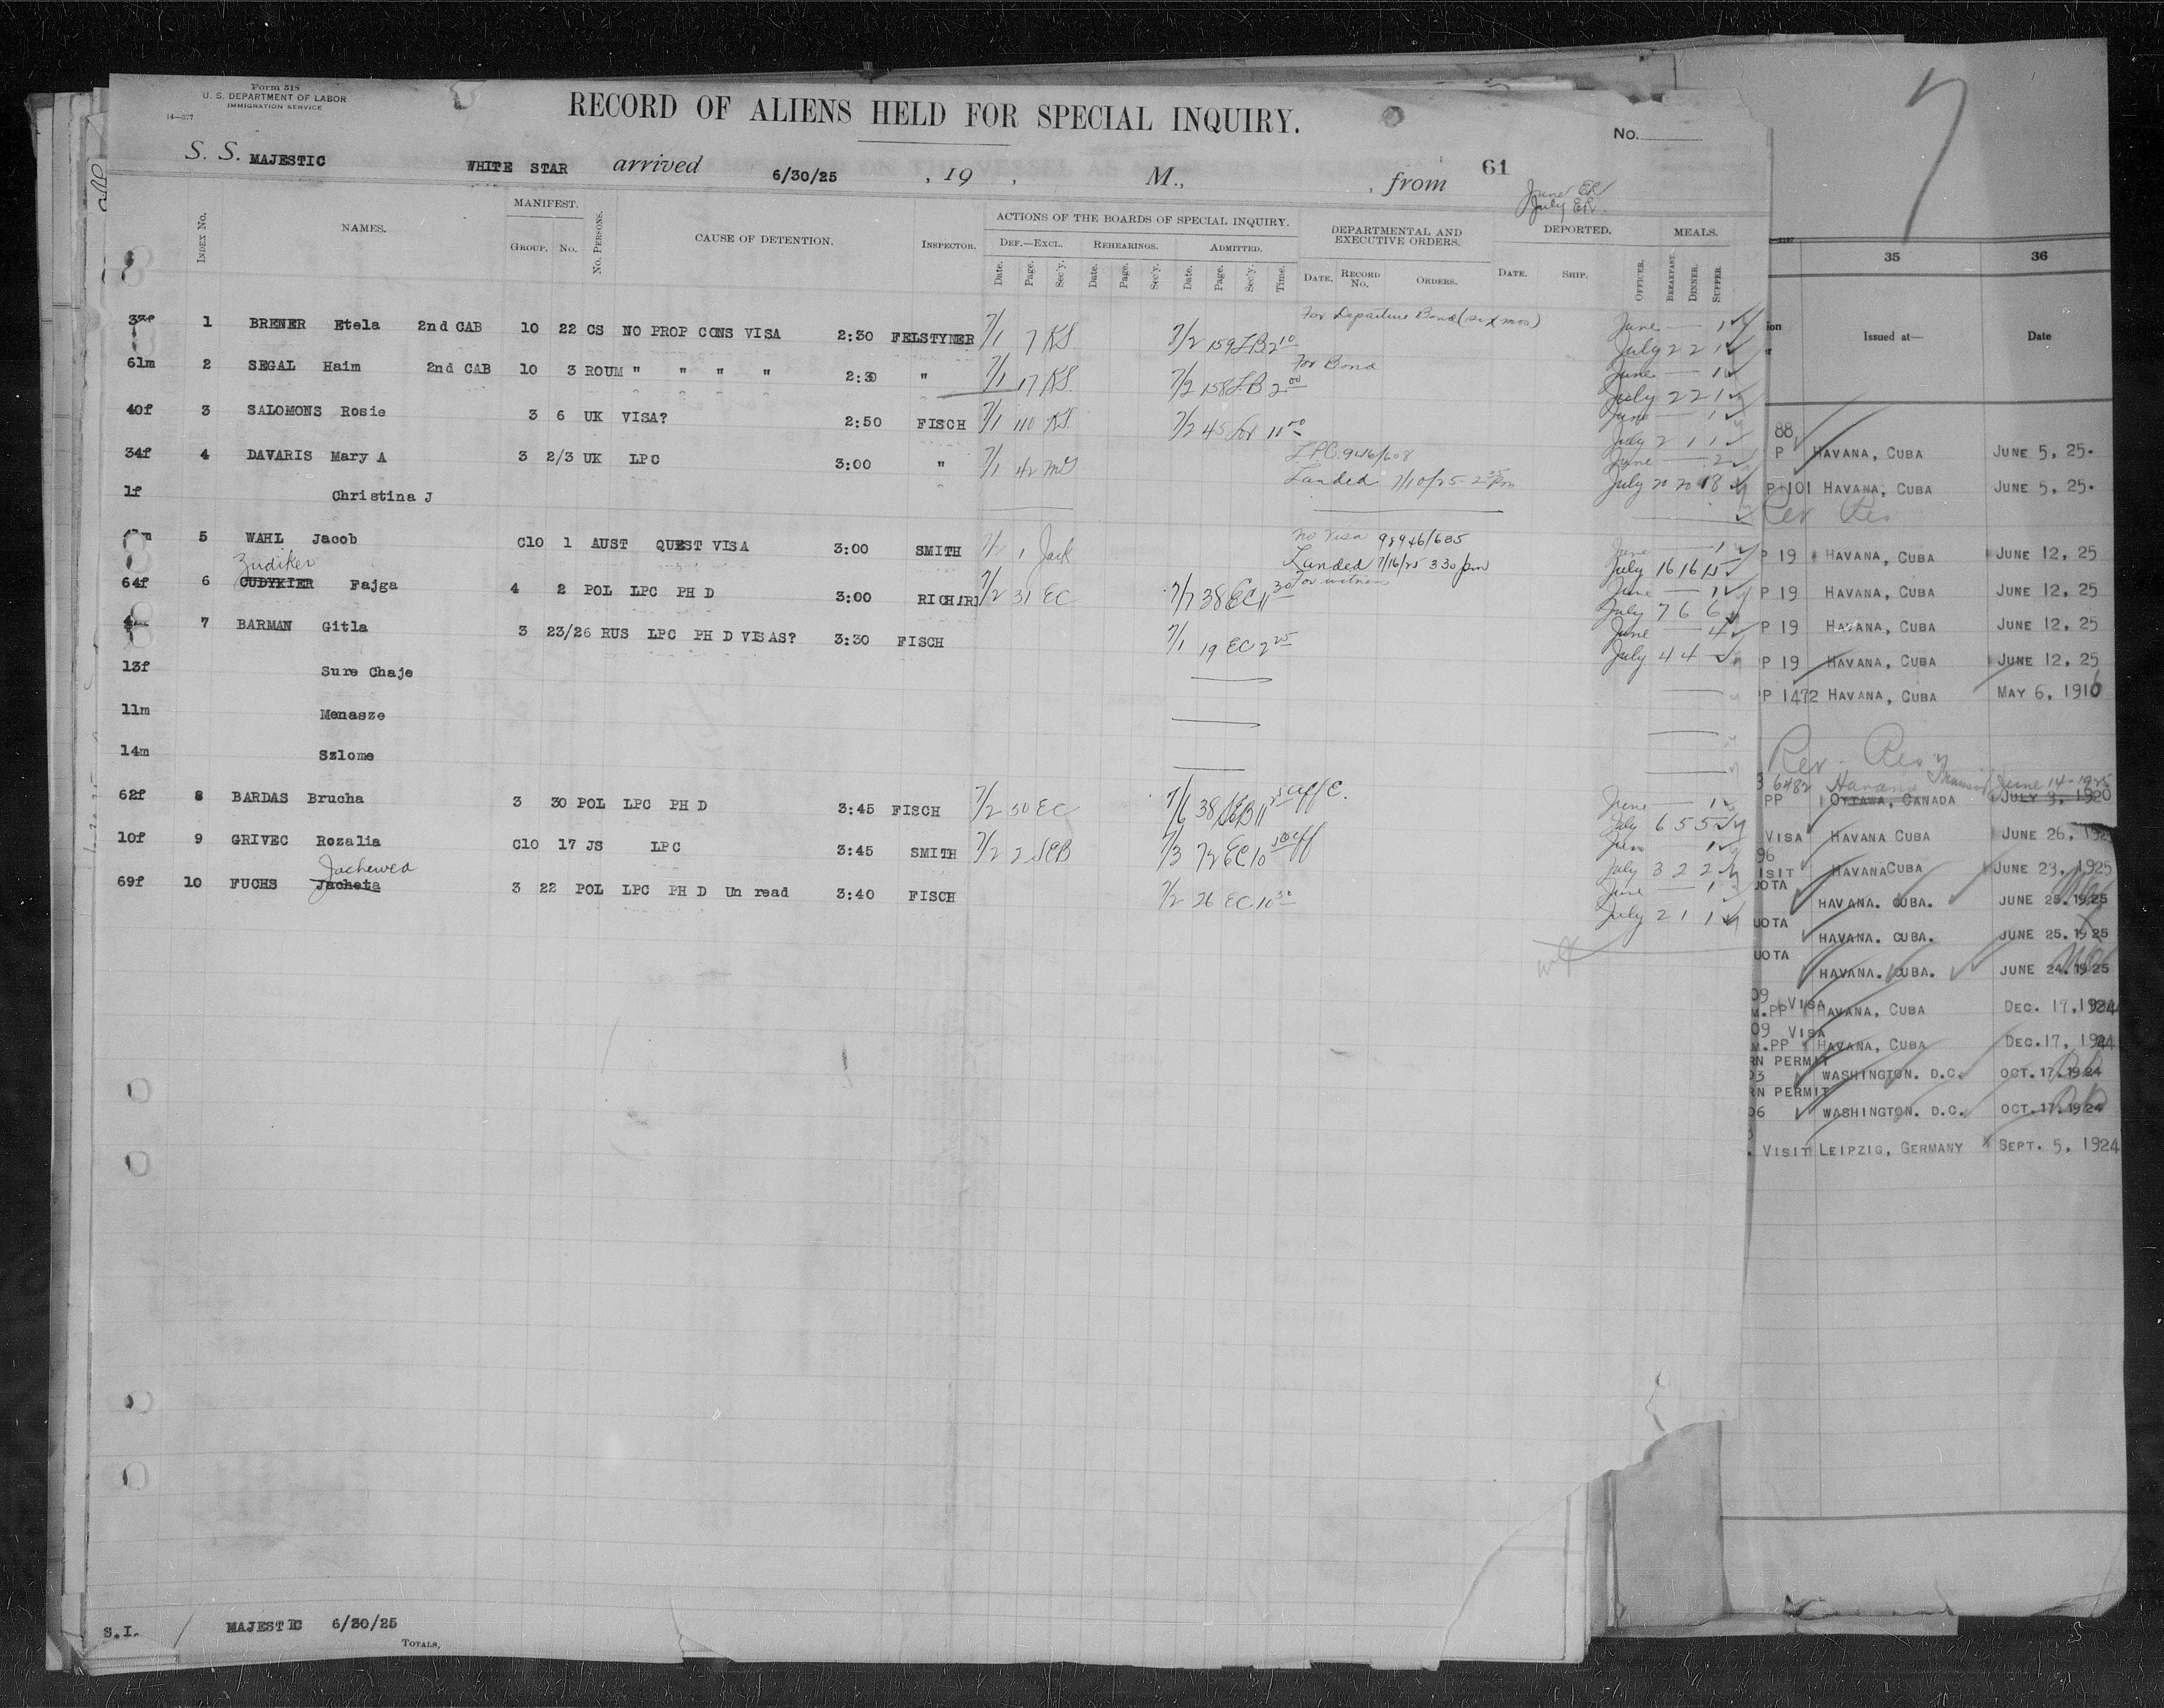 Form 518
U. S. DEPARTMENT OF LABOR
IMMIGRATION SERVICE
14—377
RECORD OF ALIENS HELD FOR SPECIAL INQUIRY.
No.
S. S. MAJESTIC WHITE STAR arrived 6/30/25 , 19 , M., , from 61
June ER
July ER
INDEX No. NAMES. MANIFEST. GROUP. No. No. PERSONS. CAUSE OF DETENTION. INSPECTOR. ACTIONS OF THE BOARDS OF SPECIAL INQUIRY. DEPARTMENTAL AND EXECUTIVE ORDERS. DEPORTED. MEALS.
DEF.—EXCL. REHEARINGS. ADMITTED.
Date. Page. Sec'y. Date. Page. Sec'y. Date. Page. Sec'y. Time. DATE. RECORD No. ORDERS. DATE. SHIP. OFFICER. BREAKFAST. DINNER. SUPPER.
1 BRENER Etela 2nd CAB 10 22 CS NO PROP CONS VISA 2:30 FELSTYNER 7/1 7 KS 7/2 159 LB 2 10 For Departure Bond (six mos) June — 1
July 2 2 1
61m 2 SEGAL Haim 2nd CAB 10 3 ROUM " " " " 2:30 " 7/1 17 KS 7/2 158 LB 2 00 For Bond June — 1
July 2 2 1
40f 3 SALOMONS Rosie 3 6 UK VISA? 2:50 FISCH 7/1 110 KS 7/2 45 11 June — 1
July 2 1 1
34f 4 DAVARIS Mary A 3 2/3 UK LPC 3:00 " 7/1 42 LPC June — 2
Landed 7/10/25 July 20 20 18
1f Christina J
5 WAHL Jacob C10 1 AUST QUEST VISA 3:00 SMITH 7/2 1 Jack no visa 98946/685 June — 1
Landed 7/16/25 3 30 pm July 16 16 15
Zudiker
64f 6 CUDYKIER Fajga 4 2 POL LPC PH D 3:00 RICHARD 7/2 31 EC 7/7 38 EC 11 30 For witness June — 1
July 7 6 6
7 BARMAN Gitla 3 23/26 RUS LPC PH D VISAS? 3:30 FISCH 7/1 19 EC 2 25 June — 4
July 4 4
13f Sure Chaje
11m Menasze
14m Szlome
62f 8 BARDAS Brucha 3 30 POL LPC PH D 3:45 FISCH 7/2 30 EC 7/6 38 SEB 11 June — 1
July 6 5 5
10f 9 GRIVEC Rozalia C10 17 JS LPC 3:45 SMITH 7/2 2 SEB 7/3 72 EC 10 June — 1
July 3 2 2
Jachewed
69f 10 FUCHS Jacheta 3 22 POL LPC PH D Un read 3:40 FISCH 7/2 26 EC 10 30 June — 1
July 2 1 1
S.I. MAJESTIC 6/30/25
TOTALS,
7
35 36
Issued at— Date
88
P HAVANA, CUBA JUNE 5, 25.
P 101 HAVANA, CUBA JUNE 5, 25.
Rev Res
P 19 HAVANA, CUBA JUNE 12, 25
P 19 HAVANA, CUBA JUNE 12, 25
P 19 HAVANA, CUBA JUNE 12, 25
P 19 HAVANA, CUBA JUNE 12, 25
PP 1472 HAVANA, CUBA MAY 6, 1916
Rev. Res
6482 Havana June 14-1925
PP OTTAWA, CANADA JULY 3, 1920
VISA HAVANA CUBA JUNE 26,
96
ISIT HAVANA CUBA JUNE 23, 1925
UOTA
HAVANA. CUBA. JUNE 25.1925
UOTA
HAVANA. CUBA. JUNE 25.1925
UOTA
HAVANA. CUBA. JUNE 24.1925
09 VISA
M.PP HAVANA, CUBA DEC. 17, 1924
09 VISA
M.PP HAVANA, CUBA DEC.17, 1924
RN PERMIT
03 WASHINGTON. D.C. OCT.17.1924
RN PERMIT
06 WASHINGTON. D.C. OCT.17.1924
VISIT LEIPZIG, GERMANY SEPT. 5, 1924